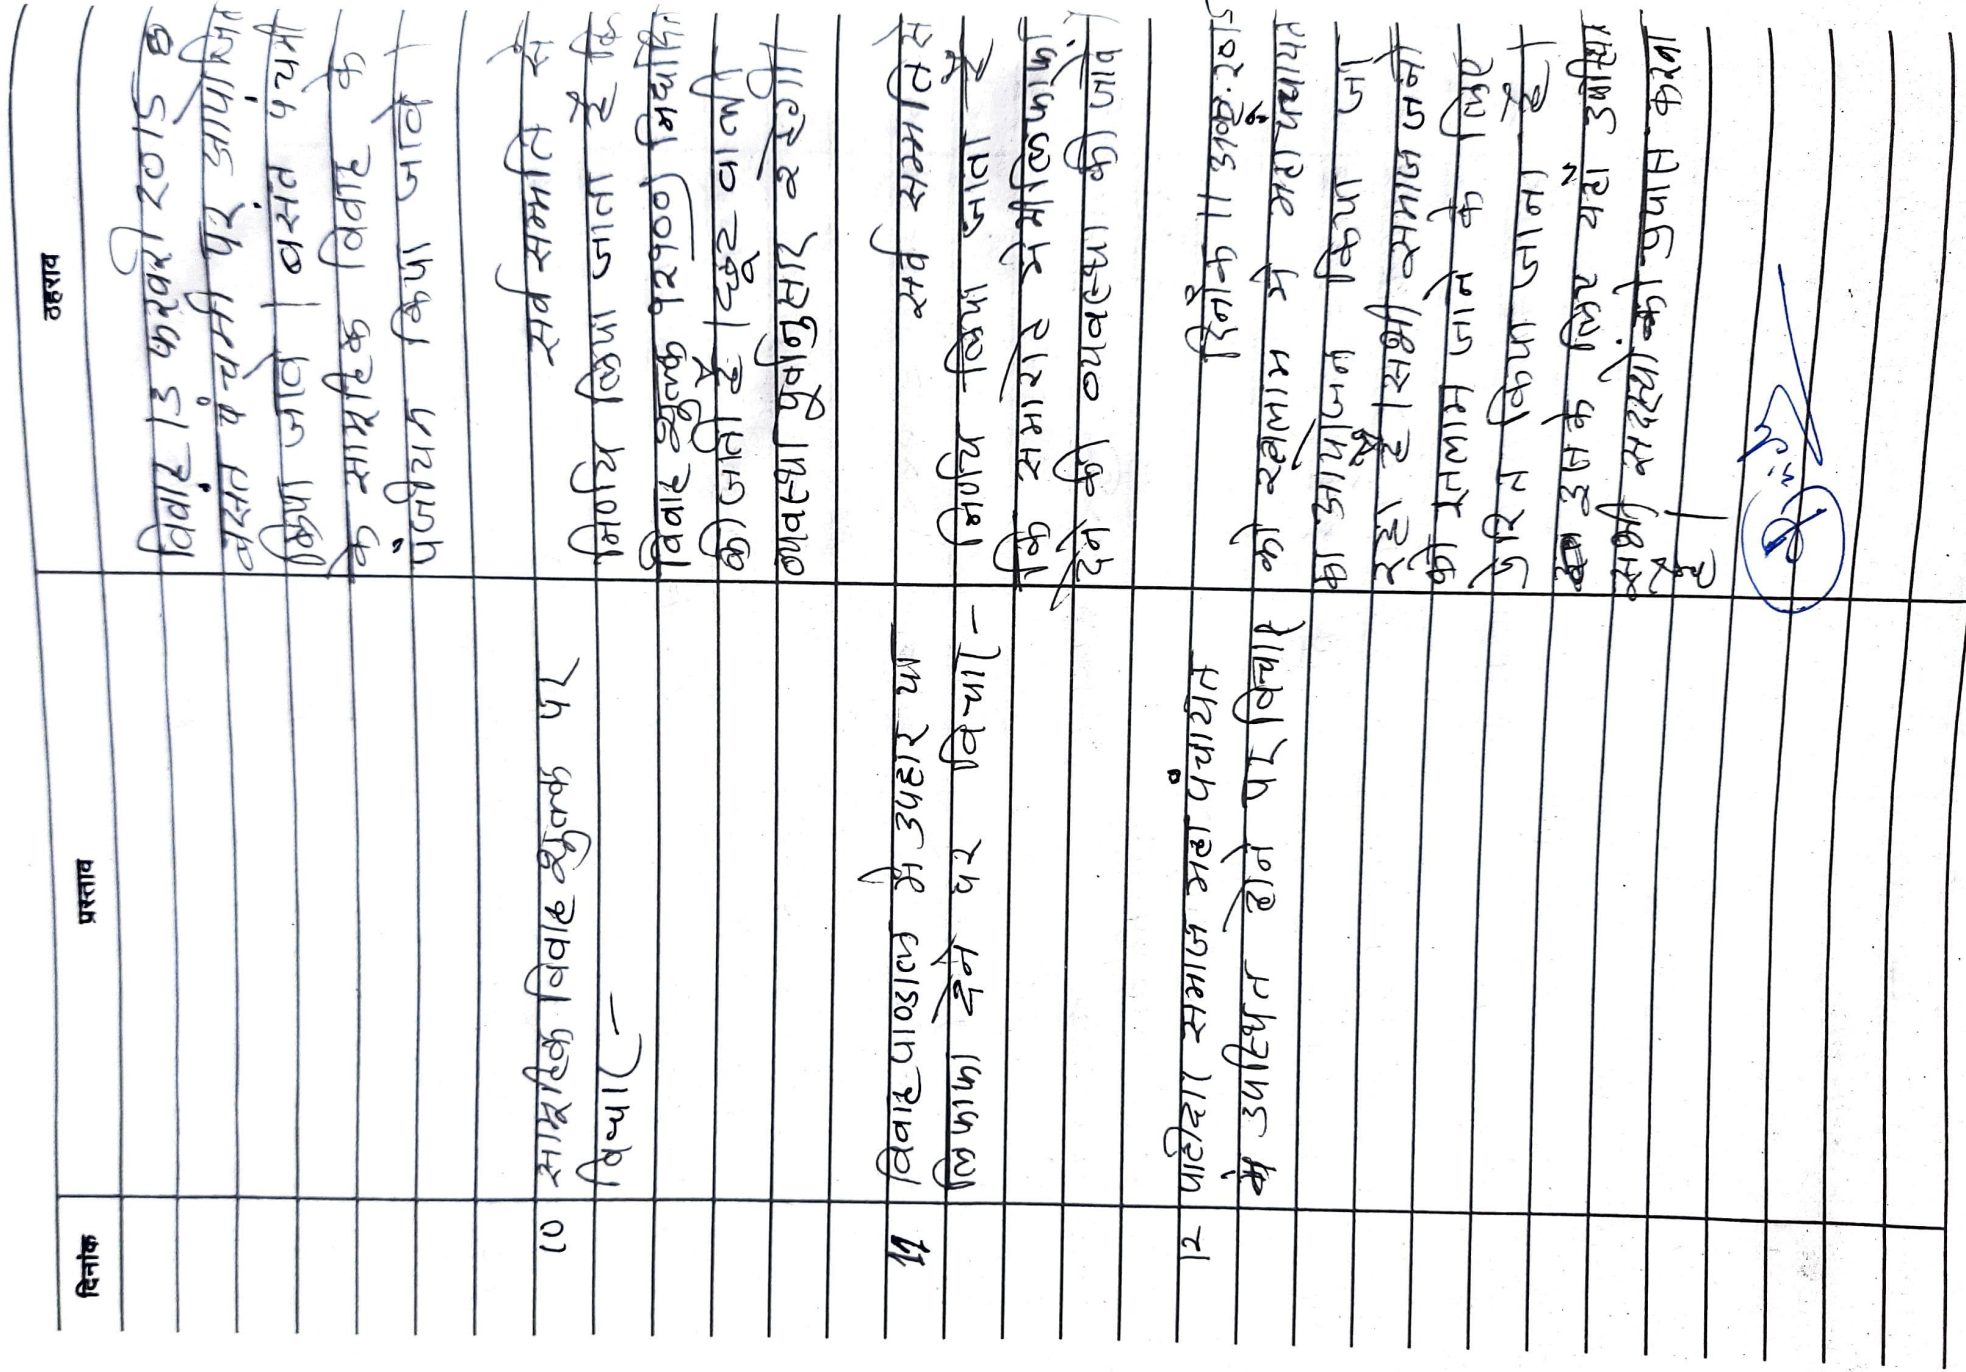 दिनांक प्रस्ताव ठहराव
विवाह 13 फरवरी 2015 को
वसंत पंचमी पर आयोजित
किया जावे। वसंत पंचमी
के सामूहिक विवाह के
पंजीयन किया जावे।
10 सामूहिक विवाह शुल्क पर सर्व सम्मति से
विचार – निर्णय लिया जाता है कि
विवाह शुल्क 12100/ निर्धारित
की जाती है। छूट वाली
व्यवस्था पूर्वानुसार रहेगी।
11 विवाह पाण्डाल में उपहार या सर्व सम्मति से
लिफाफा देने पर विचार – निर्णय लिया जाता है
कि समारोह में लिफाफा
देने की व्यवस्था की जावे
12 पाटीदार समाज महा पंचायत दिनांक 11 अक्टू. 2015
में उपस्थित होने पर विचार को रतलाम में महापंचायत
का आयोजन किया जा
रहा है। सभी समाज जनों
को रतलाम जाने के लिए
प्रेरित किया जाना है।
उक्त के लिए यहां उपस्थित
सभी सदस्यों को प्रयास करना
है।